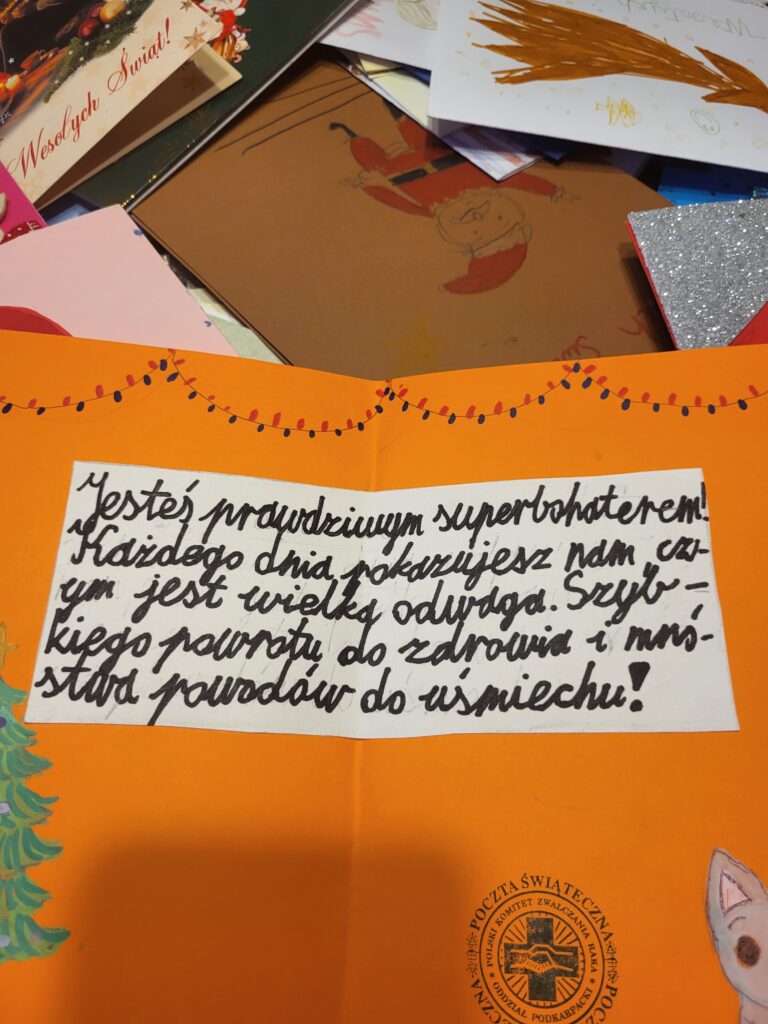 Wesołych Świąt!
Jesteś prawdziwym superbohaterem!
Każdego dnia pokazujesz nam cz-
ym jest wielka odwaga. Szyb-
kiego powrotu do zdrowia i mnó-
stwa powodów do uśmiechu!
POCZTA ŚWIĄTECZNA
POLSKI KOMITET ZWALCZANIA RAKA
ODDZIAŁ PODKARPACKI